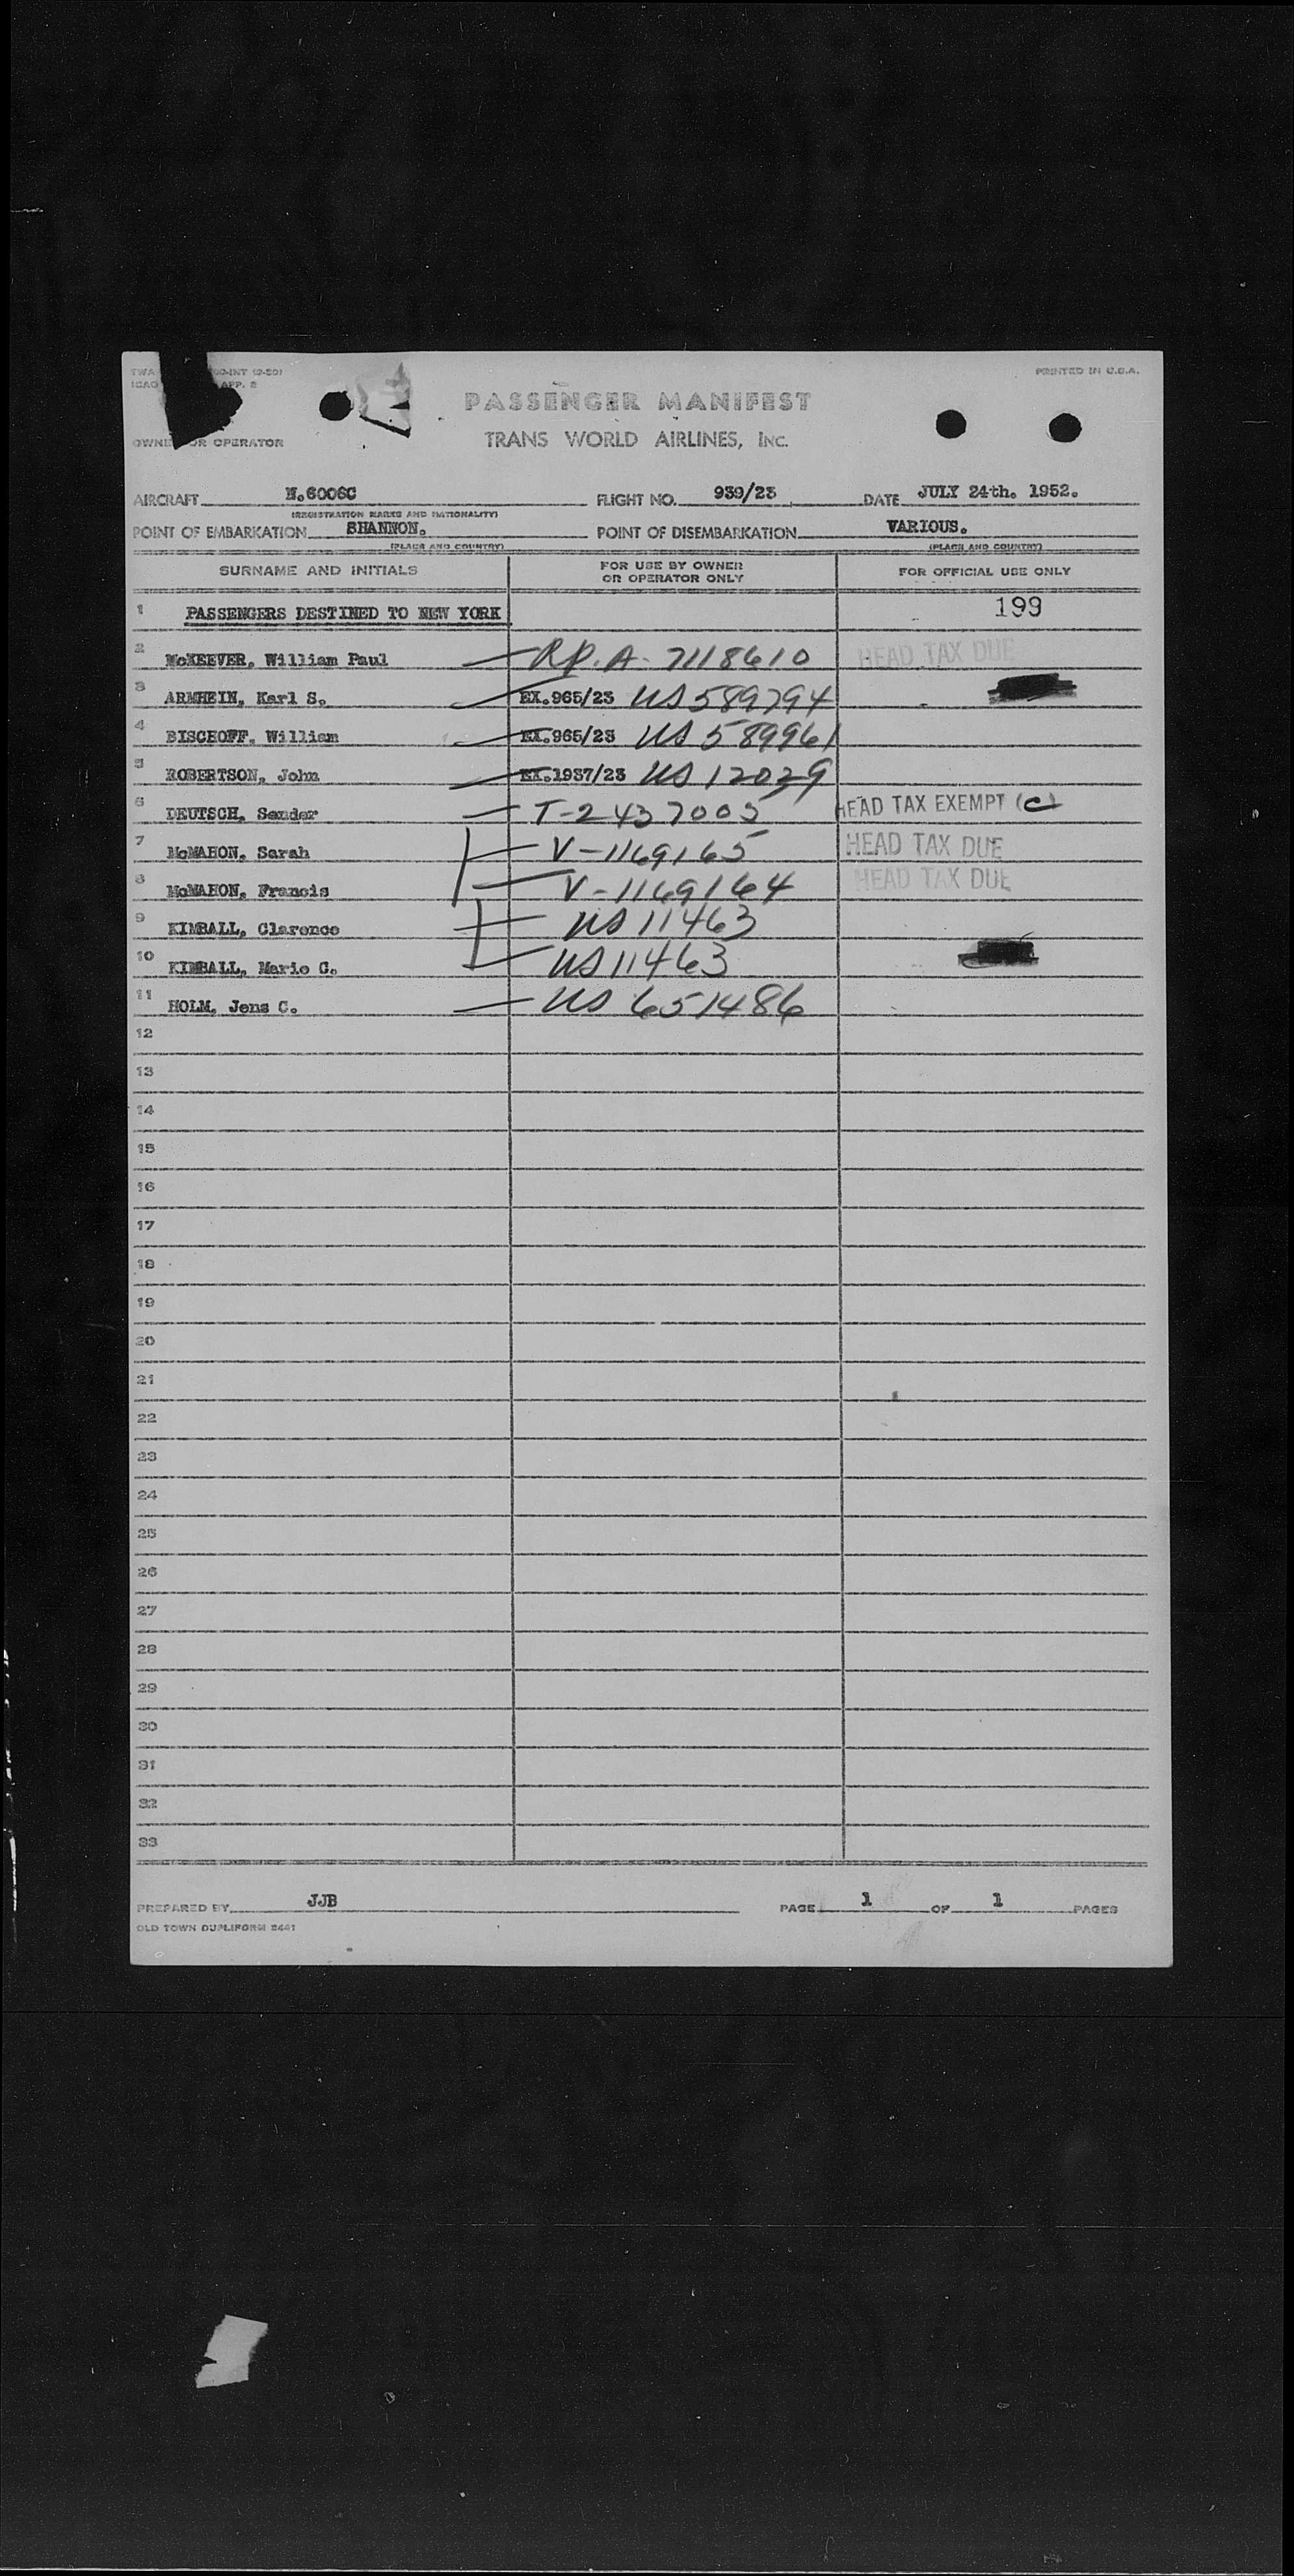 TWA 00-INT (9-50)
ICAO APP. 2
PRINTED IN U.S.A.
PASSENGER MANIFEST
OWNE OR OPERATOR
TRANS WORLD AIRLINES, INC.
AIRCRAFT N.6006C FLIGHT NO. 939/23 DATE JULY 24th. 1952.
(REGISTRATION MARKS AND NATIONALITY)
POINT OF EMBARKATION SHANNON. POINT OF DISEMBARKATION VARIOUS.
(PLACE AND COUNTRY) (PLACE AND COUNTRY)
SURNAME AND INITIALS FOR USE BY OWNER OR OPERATOR ONLY FOR OFFICIAL USE ONLY
1 PASSENGERS DESTINED TO NEW YORK 199
2 McKEEVER, William Paul RP. A- 7118610 HEAD TAX DUE
3 ARMHEIN, Karl S. EX.965/23 US 589794
4 BISCHOFF, William EX.965/23 US 589961
5 ROBERTSON, John EX.1937/23 US 12029
6 DEUTSCH, Sander T-2437005 HEAD TAX EXEMPT (C)
7 McMAHON, Sarah V-1169165 HEAD TAX DUE
8 McMAHON, Francis V-1169164 HEAD TAX DUE
9 KIMBALL, Clarence US 11463
10 KIMBALL, Marie C. US 11463
11 HOLM, Jens C. US 651486
12
13
14
15
16
17
18
19
20
21
22
23
24
25
26
27
28
29
30
31
32
33
PREPARED BY JJB PAGE 1 OF 1 PAGES
OLD TOWN DUPLIFORM 2441